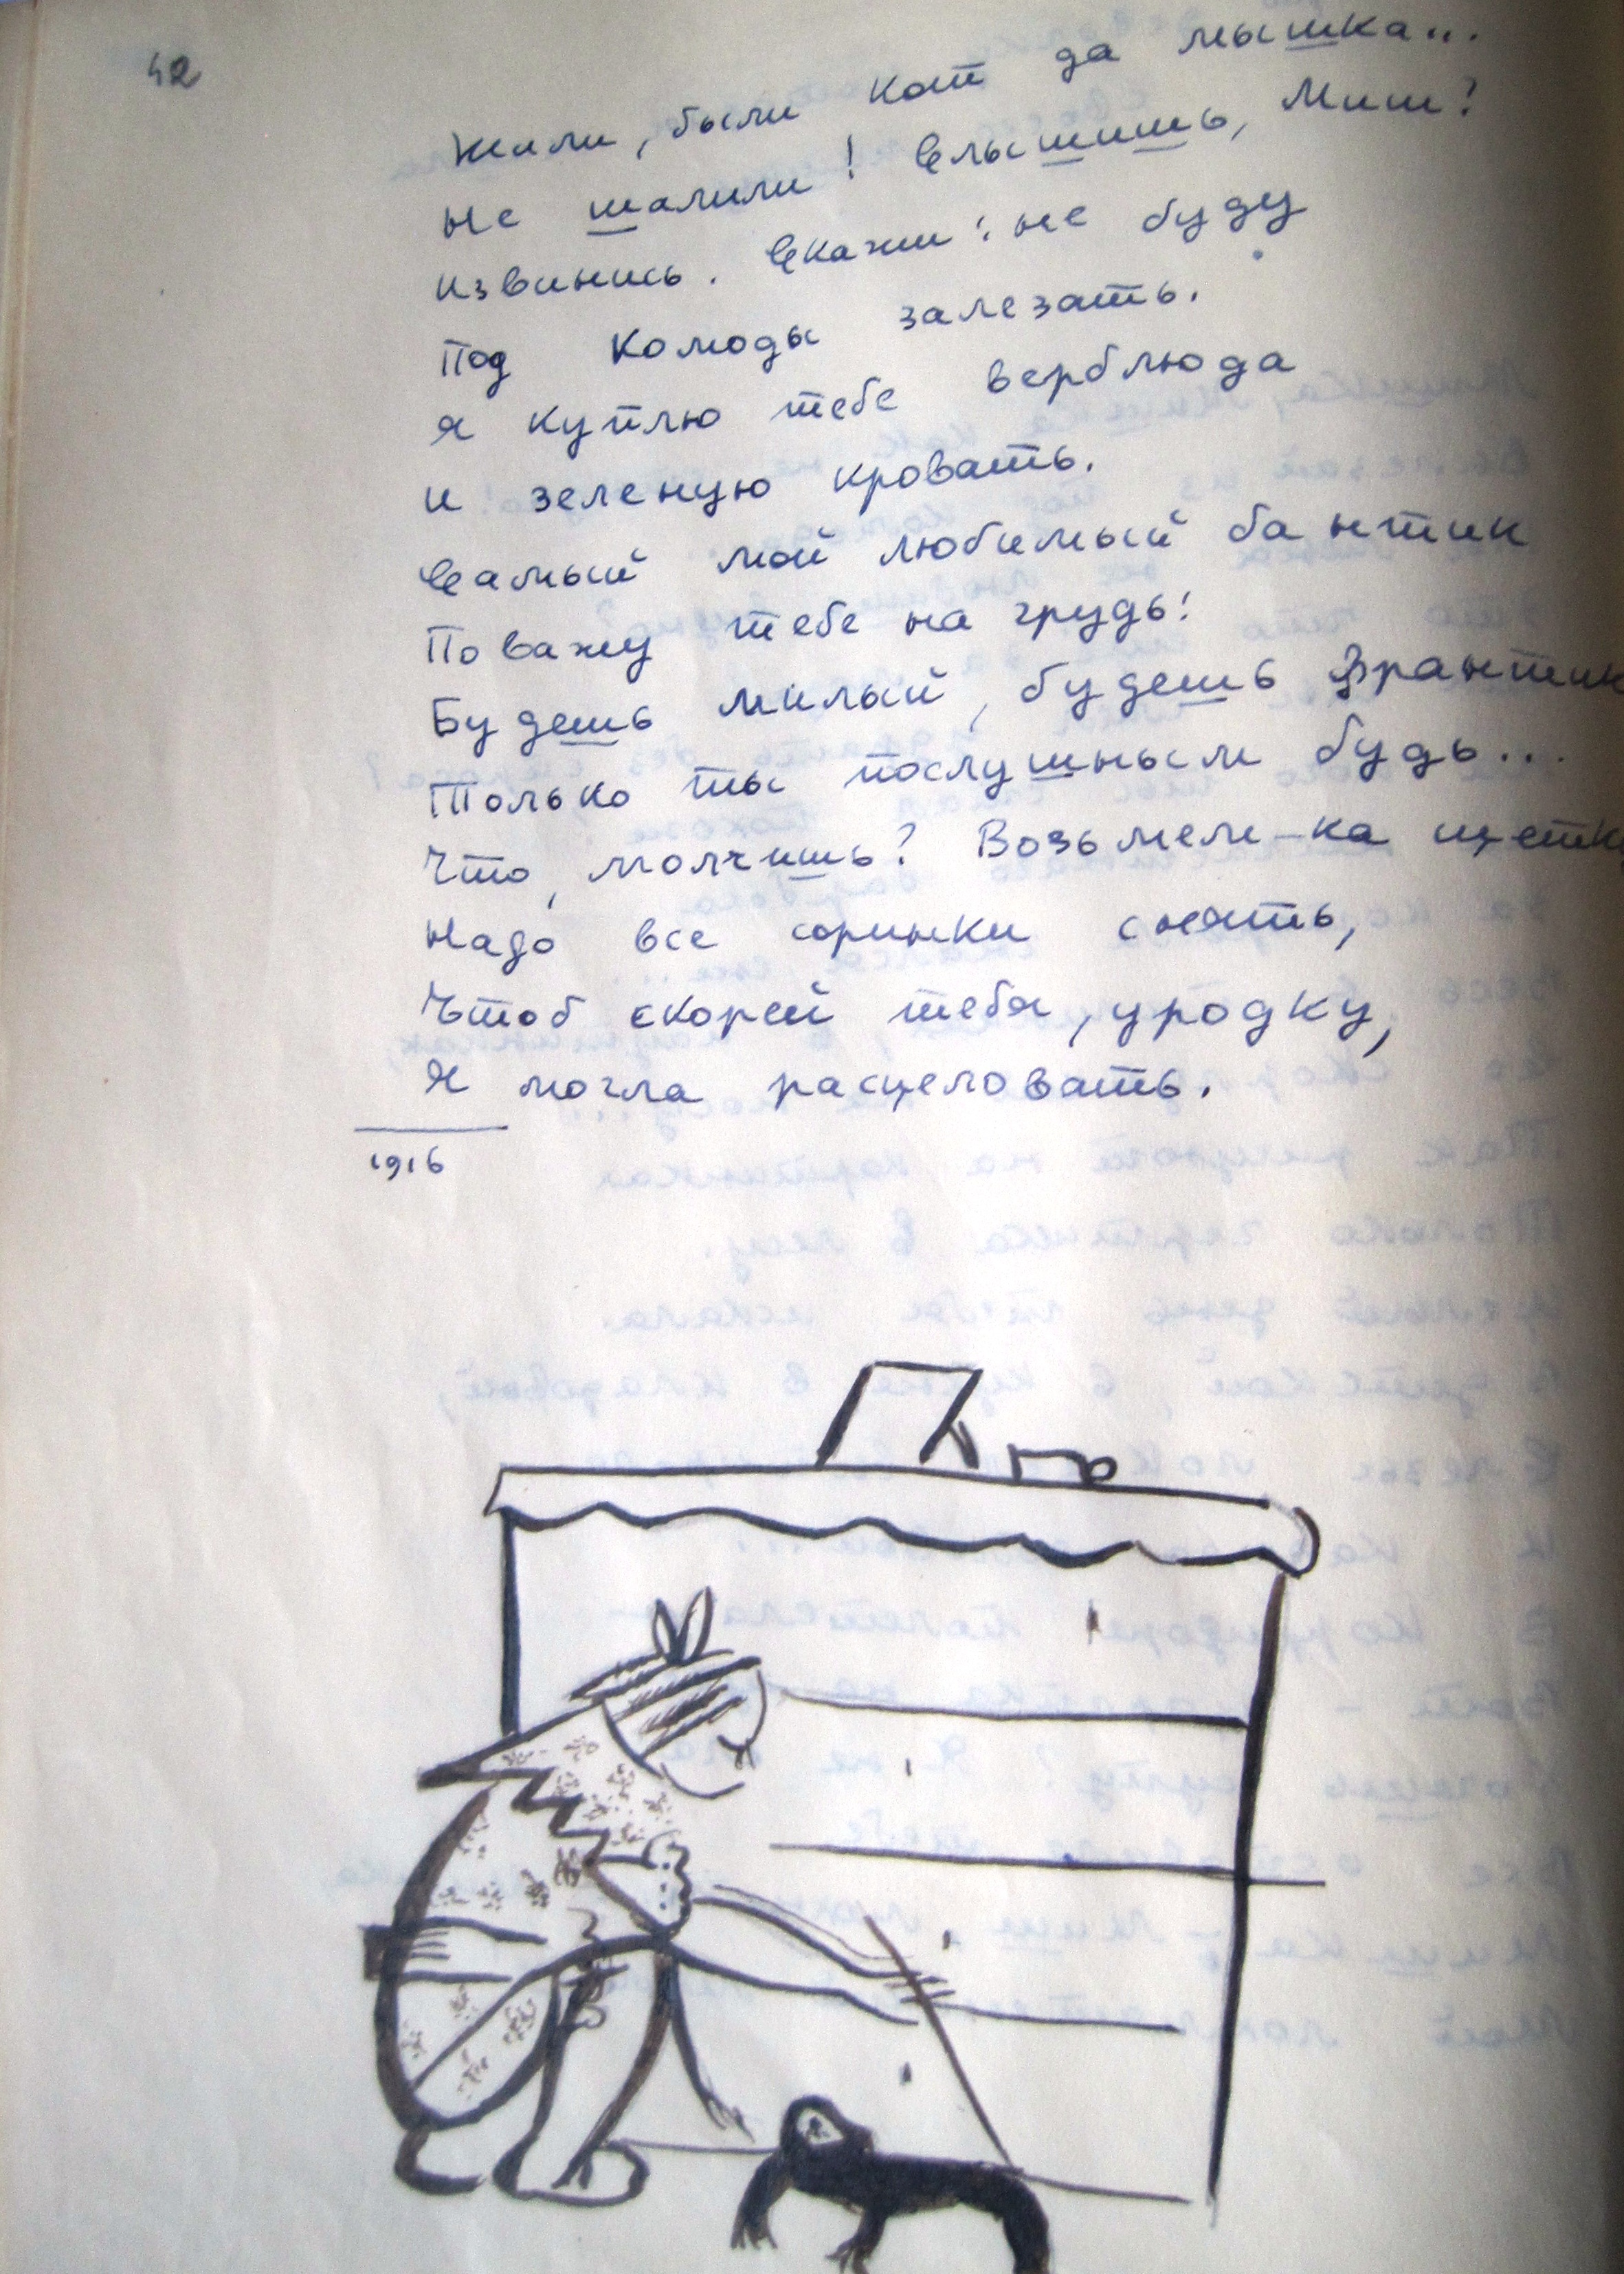 42
Жили, были кот да мышка...
Не шалили! Слышишь, Миш?
Извинись. Скажи: не буду
Под комоды залезать.
Я куплю тебе верблюда
И зеленую кровать.
Самый мой любимый бантик
Повяжу тебе на грудь:
Будешь милый, будешь франтик
Только ты послушным будь...
Что, молчишь? Возьмем-ка щетку
Надо все соринки снять,
Чтоб скорей тебя, уродку,
Я могла расцеловать.
1916